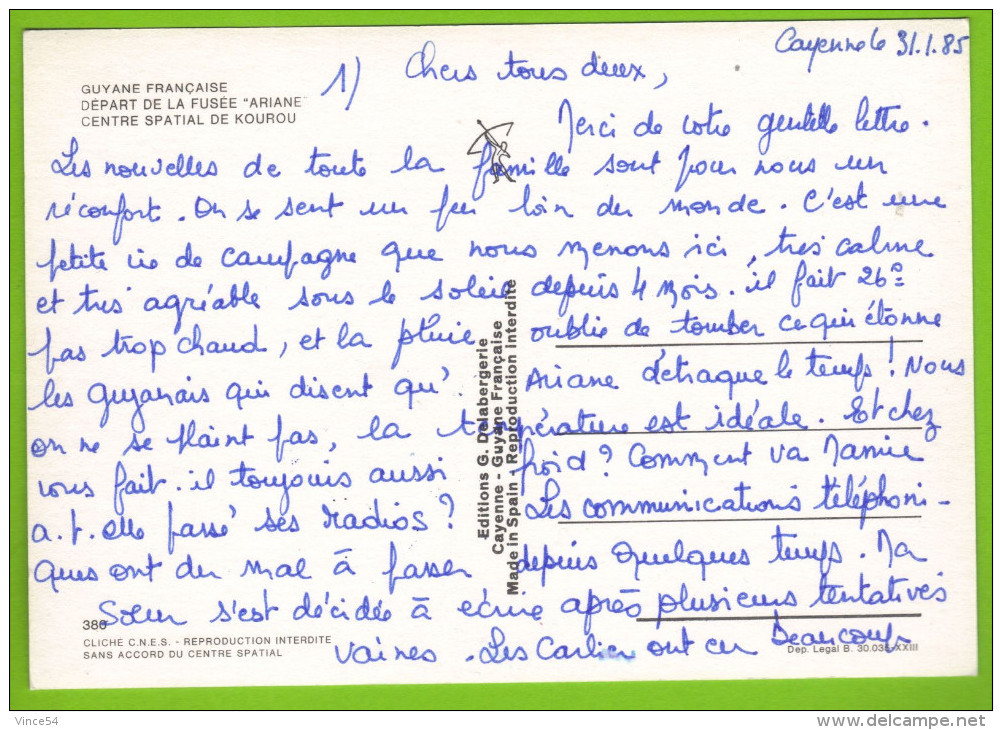 Cayenne le 31.1.85
GUYANE FRANÇAISE
DÉPART DE LA FUSÉE "ARIANE"
CENTRE SPATIAL DE KOUROU
1) Chers tous deux,
Merci de votre gentille lettre.
Les nouvelles de toute la famille sont pour nous un
réconfort. On se sent un peu loin du monde. C'est une
petite vie de campagne que nous menons ici, très calme
et très agréable sous le soleil depuis 4 mois. il fait 26°
pas trop chaud, et la pluie oublie de tomber ce qui étonne
les guyanais qui disent qu'Ariane détraque le temps! Nous
on ne se plaint pas, la température est idéale. Et chez
vous fait.il toujours aussi froid? Comment va Mamie
a.t.elle passé ses radios? Les communications téléphoni-
ques ont du mal à passer depuis quelques temps. Ma
Soeur s'est décidée à écrire après plusieurs tentatives
vaines. Les Carlier ont eu beaucoup
Editions G. Delabergerie
Cayenne - Guyane Française
Made in Spain - Reproduction interdite
380
CLICHE C.N.E.S. - REPRODUCTION INTERDITE
SANS ACCORD DU CENTRE SPATIAL
Dep. Legal B. 30.035-XXIII
Vince54
delcampe.net